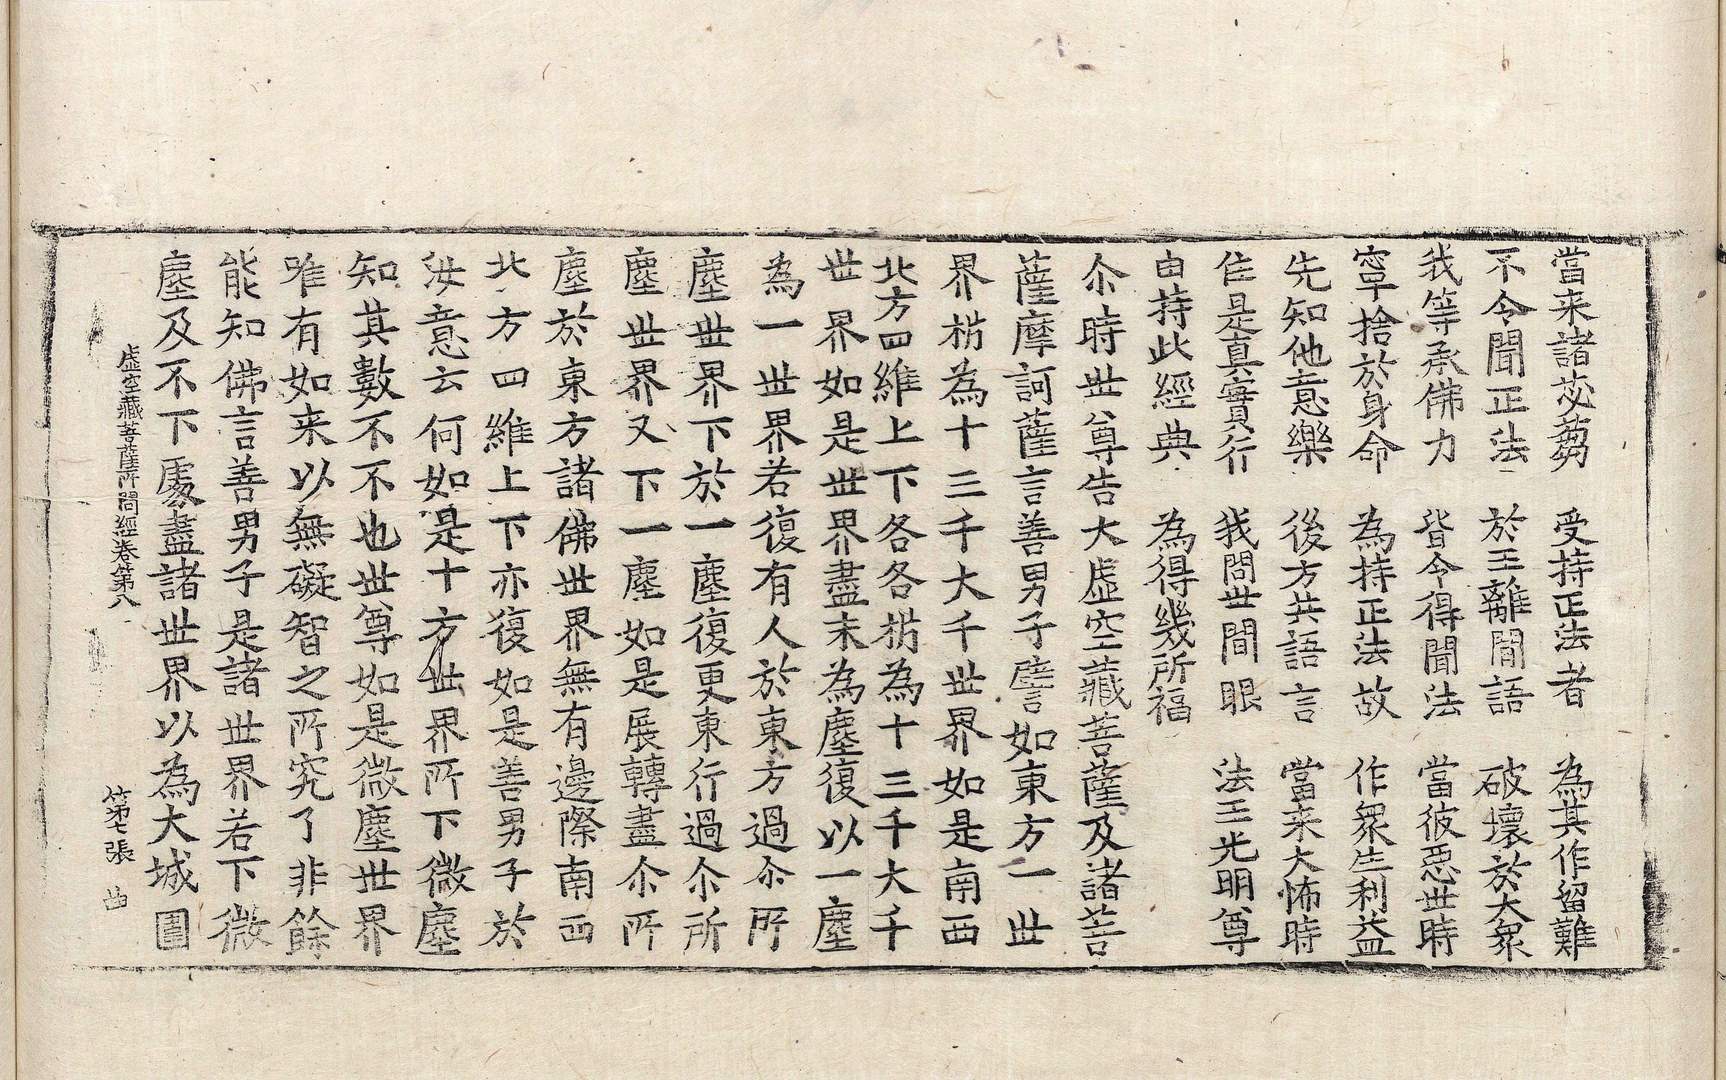 當来諸苾蒭　受持正法者　為其作留難
不令聞正法　於王離間語　破壞於大衆
我等承佛力　皆令得聞法　當彼惡世時
寧捨於身命　為持正法故　作衆生利益
先知他意樂　後方共語言　當来大怖時
住是真實行　我問世間眼　法王光明尊
由持此經典　為得幾所福
尒時世尊告大虛空藏菩薩及諸菩
薩摩訶薩言善男子譬如東方一世
界拊為十三千大千世界如是南西
北方四維上下各各拊為十三千大千
世界如是世界盡末為塵復以一塵
為一世界若復有人於東方過尒所
塵世界下於一塵復更東行過尒所
塵世界又下一塵如是展轉盡尒所
塵於東方諸佛世界無有邊際南西
北方四維上下亦復如是善男子於
汝意云何如是十方世界所下微塵
知其數不不也世尊如是微塵世界
唯有如来以無礙智之所究了非餘
能知佛言善男子是諸世界若下微
塵及不下處盡諸世界以為大城圍
虛空藏菩薩所問經卷第八　第七張　曲